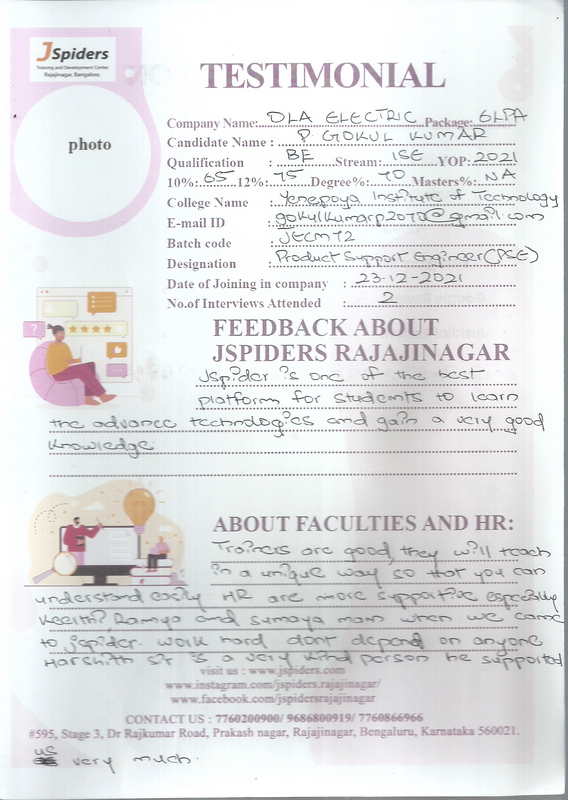 JSpiders
Training and Development Center
Rajajinagar, Bangalore.
TESTIMONIAL
photo
Company Name: DLA ELECTRIC Package: 6LPA
Candidate Name : P. GOKUL KUMAR
Qualification : BE Stream: ISE YOP: 2021
10%: 65 12%: 75 Degree%: 70 Masters%: NA
College Name : Yenepoya Institute of Technology
E-mail ID : gokulkumarp2070@gmail.com
Batch code : JECM72
Designation : Product Support Engineer(PSE)
Date of Joining in company : 23-12-2021
No.of Interviews Attended : 2
FEEDBACK ABOUT
JSPIDERS RAJAJINAGAR
Jspider is one of the best
platform for students to learn
the advance technologies and gain a very good
knowledge.
ABOUT FACULTIES AND HR:
Trainers are good, they will teach
in a unique way so that you can
understand easily HR are more supportive especially
Keerthi Ramya and sumaya mam when we came
to jspider. work hard dont depend on anyone
Harshith sir is a very kind person he supported
visit us : www.jspiders.com
www.instagram.com/jspidersrajajinagar/
www.facebook.com/jspidersrajajinagar
CONTACT US : 7760200900/ 9686800919/ 7760866966
#595, Stage 3, Dr Rajkumar Road, Prakash nagar, Rajajinagar, Bengaluru, Karnataka 560021.
us
very much.